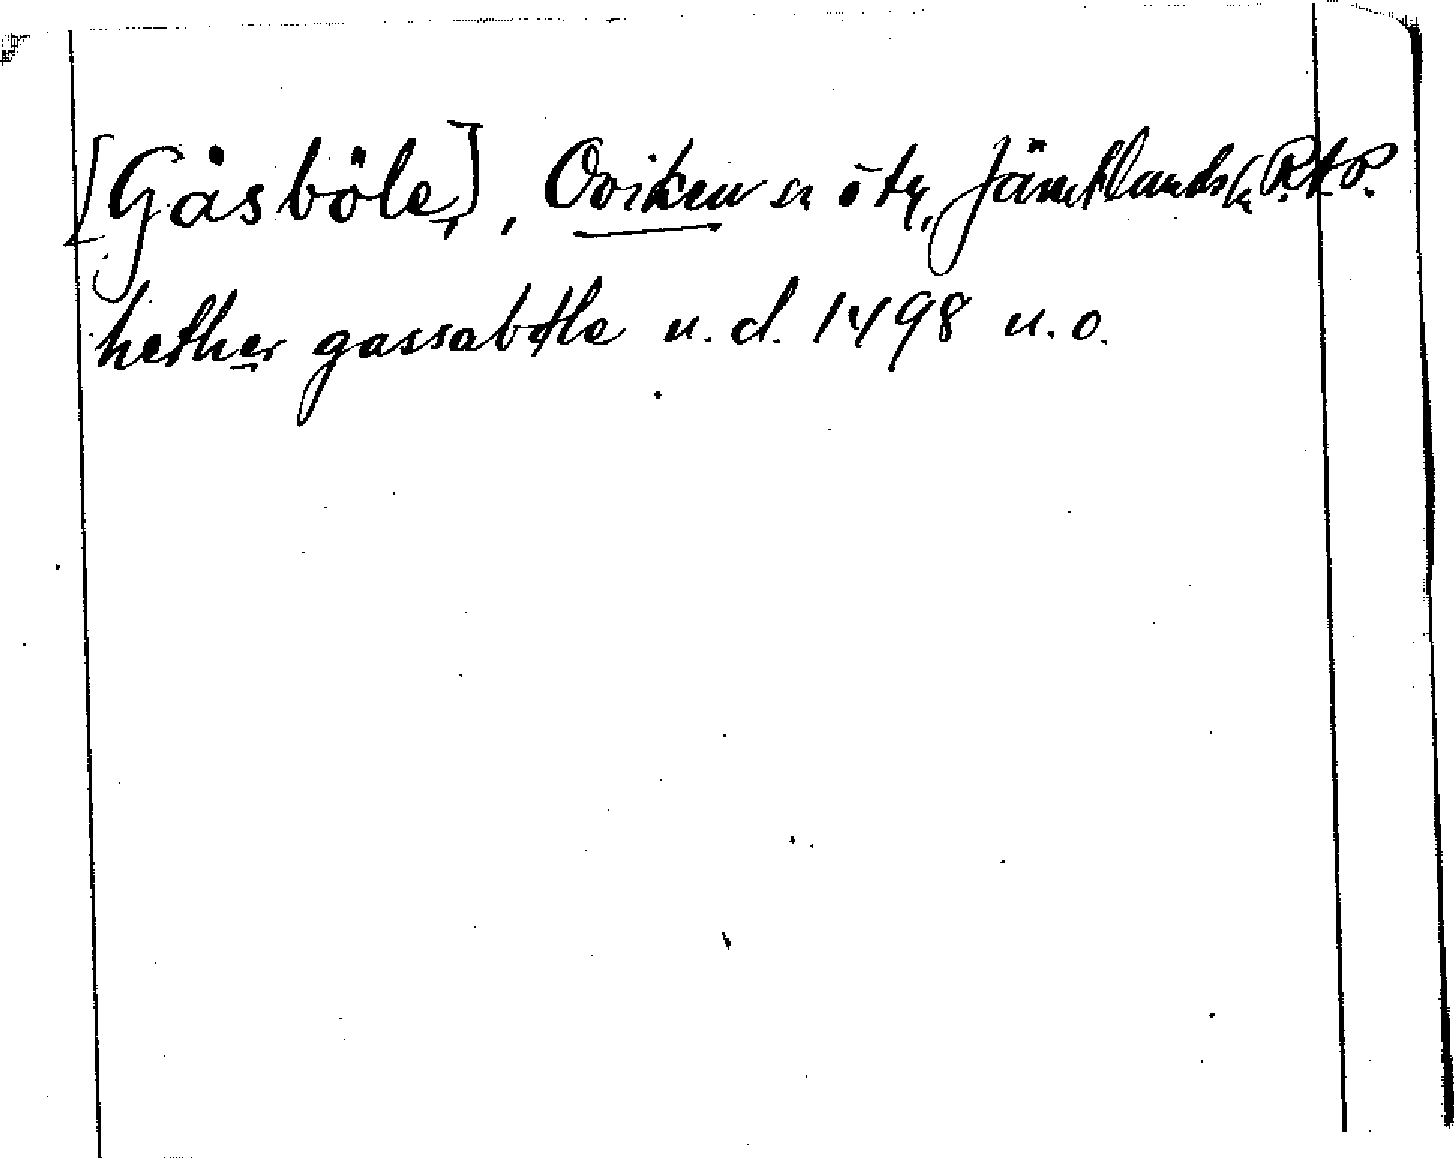 [Gåsböle], Oviken sn ö tg, Jämtlands l. RAP.
hether gassabøle u. d. 1498 u. o.